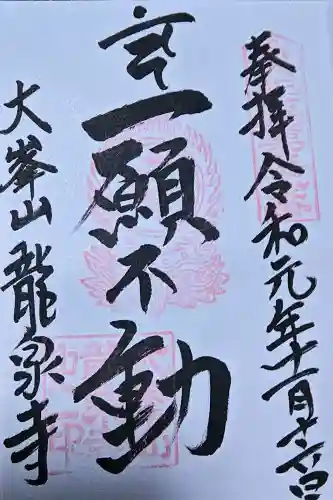 奉拝 令和元年十一月十六日
一願不動
大峯山 龍泉寺